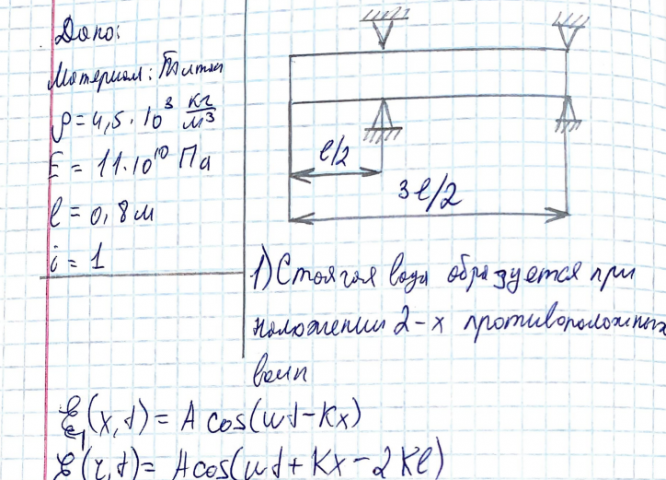 Дано:
Материал: Титан
ρ = 4,5 · 10³ кг/м³
E = 11·10¹⁰ Па
l = 0,8 м
i = 1
l/2
3l/2
1) Стоячая волна образуется при
наложении 2-х противоположных
волн
ξ₁(x,t) = A cos(ωt − Kx)
ξ(x,t) = A cos(ωt + Kx − 2Kl)